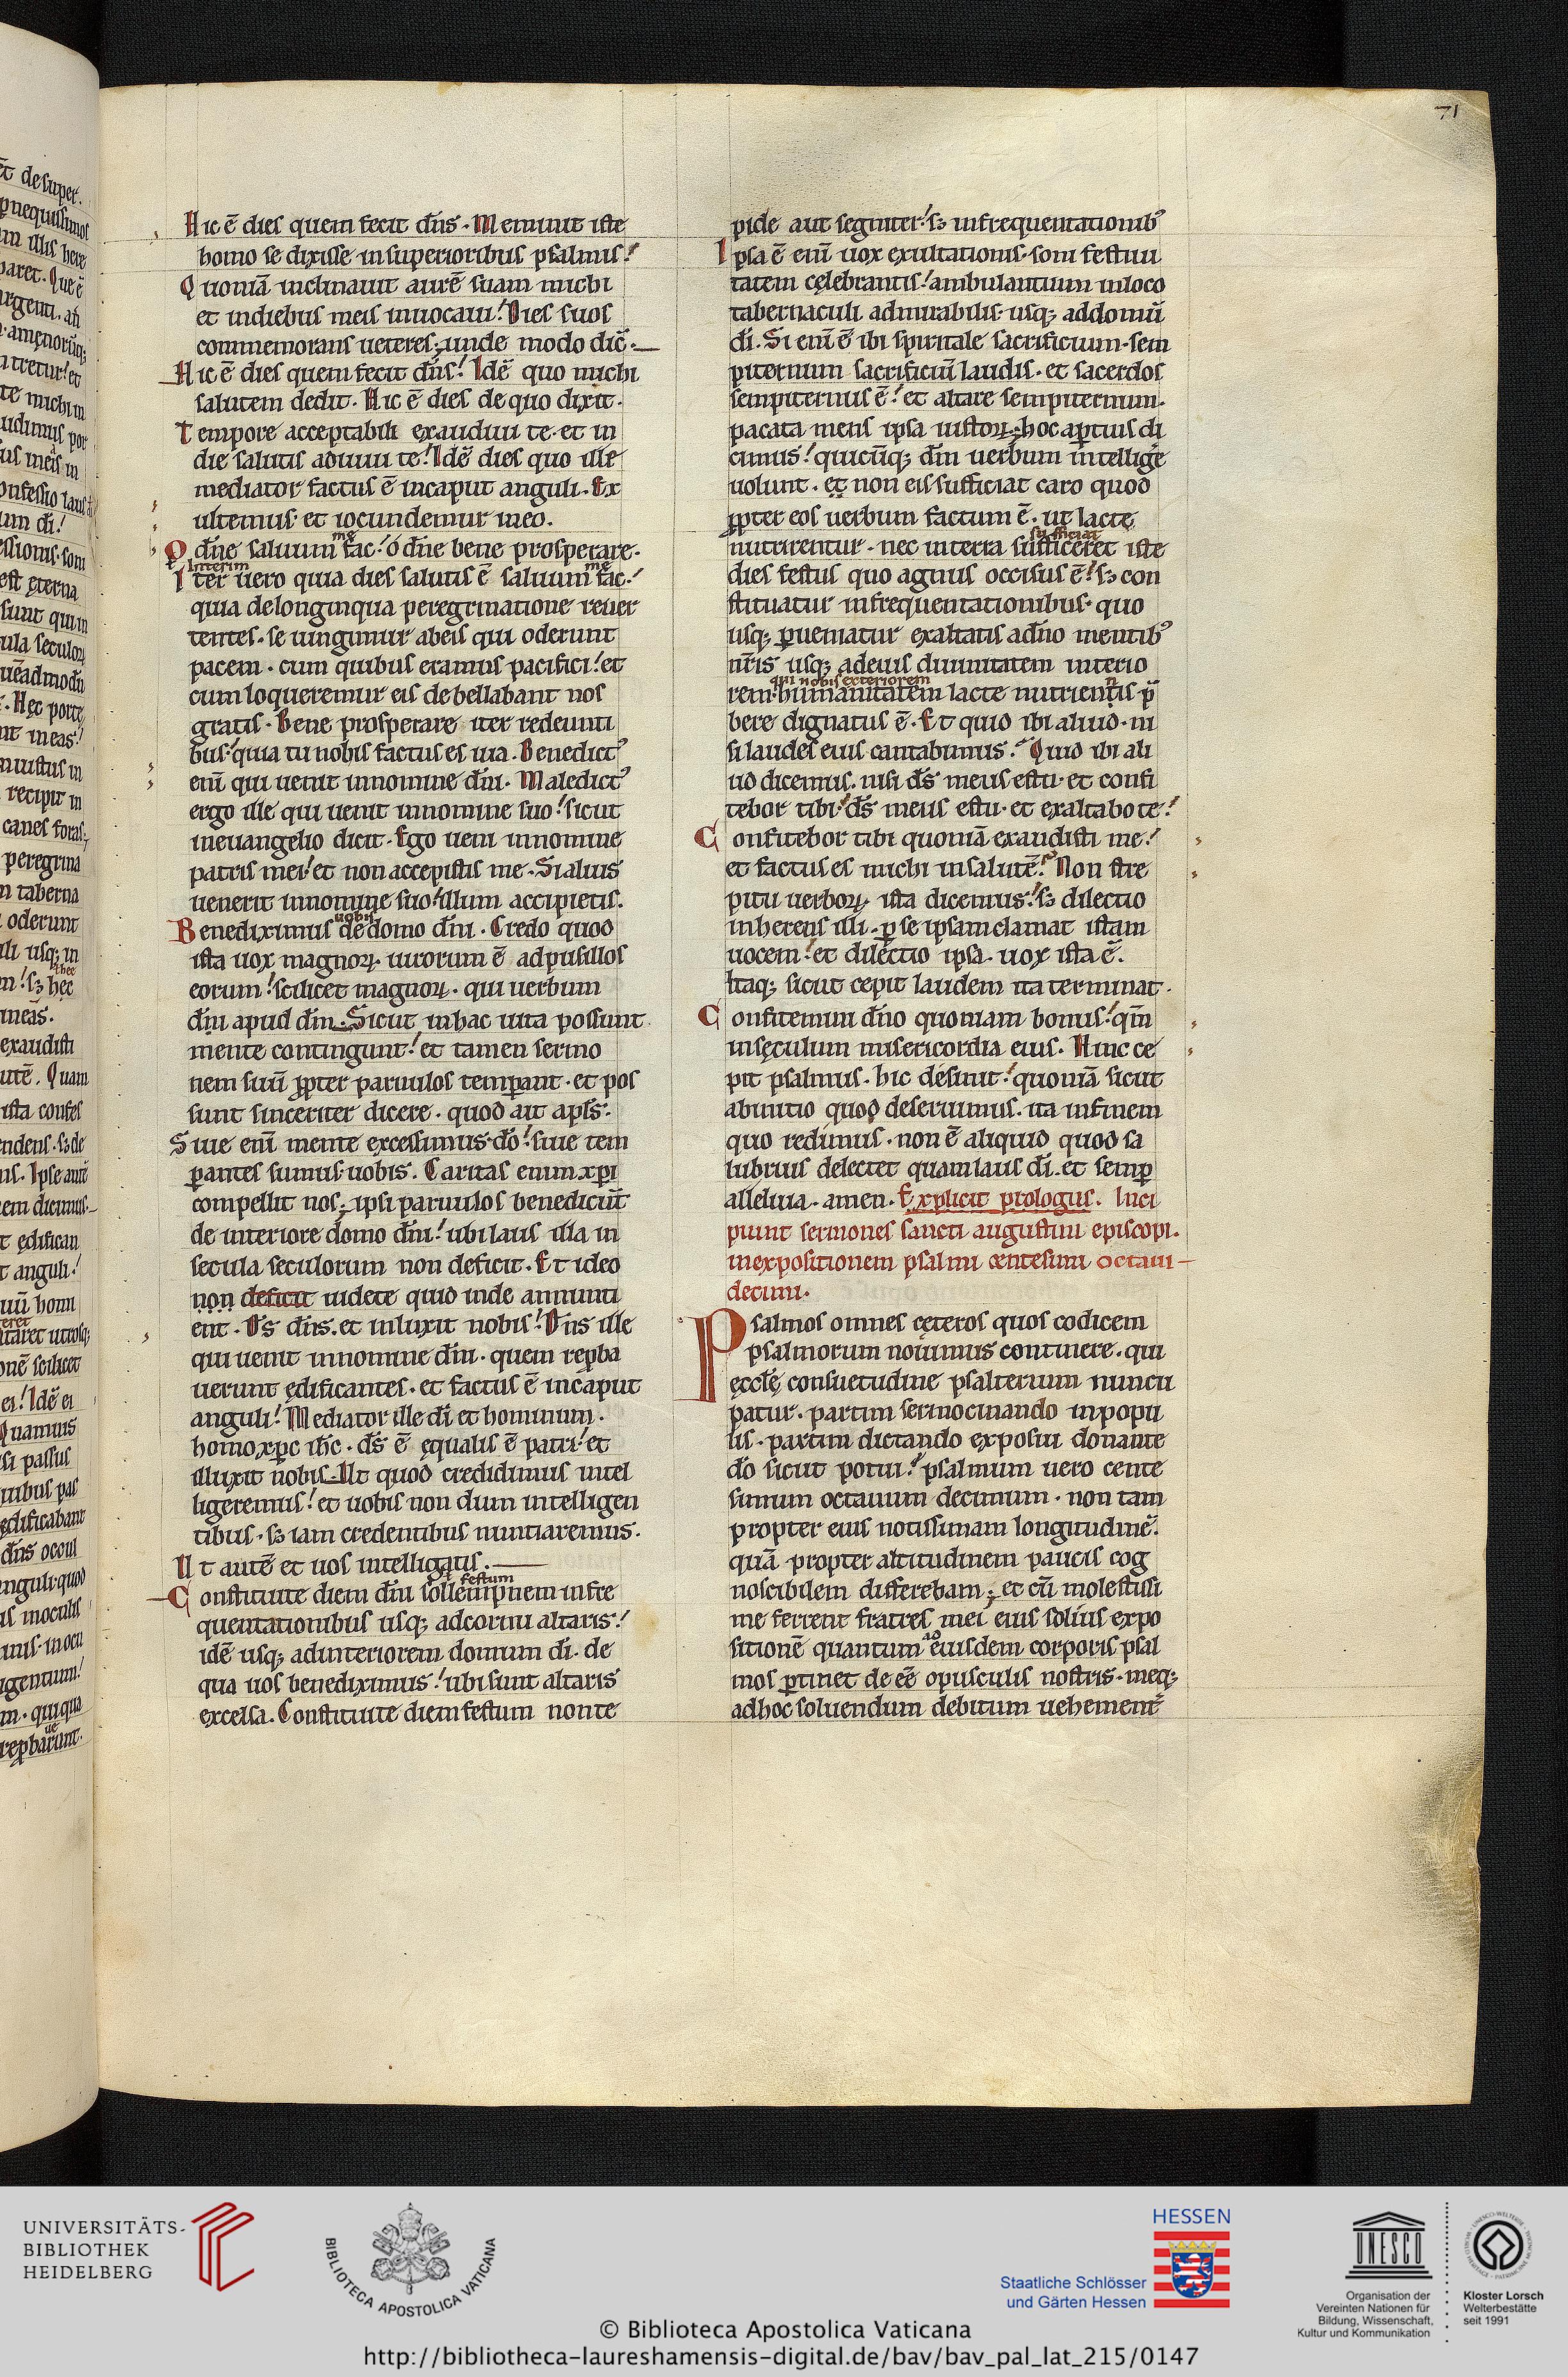 71
Hic ē dies quem fecit dn̄s. Meminit iste
homo se dixisse insuperioribus psalmis!
Quoniā inclinauit aurē suam michi
et indiebus meis inuocaui! Dies suos
commemorans ueteres; unde modo dic̄.
Hic ē dies quem fecit dn̄s! Idē quo michi
salutem dedit. Hic ē dies de quo dixit.
Tempore acceptabili exaudiui te. et in
die salutis adiuui te! Idē dies quo ille
mediator factus ē incaput anguli. Ex
ultemus et iocundemur ineo.
me
O dn̄e saluum fac! ó dn̄e bene prosperare.
interim me
Iter uero quia dies salutis ē saluum fac!
quia delonginqua peregrinatione reuer
tentes. se iungimur abeis qui oderunt
pacem. cum quibus eramus pacifici! et
cum loqueremur eis debellabant nos
gratis. Bene prosperare iter redeunti
bus! quia tu nobis factus es uia. Benedictꝰ
enī qui uenit innomine dn̄i. Maledictꝰ
ergo ille qui uenit innomine suo! sicut
ineuangelio dicit. Ego ueni innomine
patris mei! et non accepistis me. Si alius
uenerit innomine suo! illum accipietis.
uobis
Benediximus de domo dn̄i. Credo quod
ista uox magnoꝝ. uirorum ē ad pusillos
eorum! scilicet magnoꝝ. qui uerbum
dn̄i apud dm̄. Sicut inhac uita possunt
mente contingunt! et tamen sermo
nem suū ꝓpter paruulos temꝑant. et pos
sunt sinceriter dicere. quod ait apl̄s.
Siue enī mente excessimus do̅! siue tem
perantes sumus uobis. Caritas enim xp̄i
compellit nos; ipsi paruulos benedicūt
de interiore domo dn̄i! ubi laus illa in
secula seculorum non deficit. Et ideo
non deficit uidete quid inde annunti
ent. Ds̄ dn̄s. et inluxit nobis! Dn̄s ille
qui uenit innomine dn̄i. quem reꝓba
uerunt ędificantes. et factus ē incaput
anguli! Mediator ille di̅ et hominum.
homo xp̄c ih̄c. ds̄ ē ęqualis ē patri! et
illuxit nobis. Ut quod credidimus intel
ligeremus! et uobis non dum intelligen
tibus. sꝫ iam credentibus nuntiaremus.
Ut autē et uos intelligatis.
festum
Constituite diem dn̄i sollempnem infre
quentationibus usqꝫ adcornu altaris!
idē usqꝫ adinteriorem domum di̅. de
qua uos benediximus! ubi sunt altaris
excelsa. Constituite diem festum non te
pide aut segniter! sꝫ infrequentationibꝰ
Ipsa ē enī uox exultationis. soni festiui
tatem cęlebrantis! ambulantium inloco
tabernaculi admirabilis. usqꝫ addomū
di̅. Si enī ē ibi spiritale sacrificium. sem
piternum sacrificiū laudis. et sacerdos
sempiternus ē! et altare sempiternum.
pacata mens ipsa iustoꝝ; hoc aꝑtius di
cimus! quicūqꝫ dm̄ uerbum intelligere
uolunt. et non eis sufficiat caro quod
ꝓpter eos uerbum factum ē. ut lacte
sufficiat
nutrirentur. nec interra sufficeret iste
dies festus quo agnus occisus ē! sꝫ con
stituatur infrequentationibus. quo
usqꝫ ꝑueniatur exaltatis adn̄o mentibꝰ
nr̄is usqꝫ adeius diuinitatem interio
qui nobis exteriorem n
rem. humanitatem lacte nutrientis p̄
bere dignatus ē. Et quid ibi aliud. ni
si laudes eius cantabimus. Quid ibi ali
ud dicemus. nisi ds̄ meus estu. et confi
tebor tibi! ds̄ meus estu. et exaltabo te!
Confitebor tibi quoniā exaudisti me!
et factus es michi insalutē! Non stre
pitu uerboꝝ. ista dicemus! sꝫ dilectio
inherens illi. ꝑ se ipsam clamat istam
uocem! et dilectio ipsa. uox ista ē.
Itaqꝫ sicut cepit laudem ita terminat.
Confitemini dn̄o quoniam bonus! qm̄
insęculum misericordia eius. Hinc ce
pit psalmus. hic desinit! quoniā sicut
abinitio quod deseruimus. ita infinem
quo redimus. non ē aliquid quod sa
lubrius delectet quam laus di̅. et semꝑ
alleluia. amen. Explicit prologus. Inci
piunt sermones sancti augustini episcopi.
inexpositionem psalmi centesimi octaui
decimi.
Psalmos omnes cęteros quos codicem
psalmorum nouimus continere. qui
ęccl̄ę consuetudine psalterium nuncu
patur. partim sermocinando inpopu
lis. partim dictando exposui donante
do̅ sicut potui! psalmum uero cente
simum octauum decimum. non tam
propter eius notissimam longitudinē.
quā propter altitudinem paucis cog
noscibilem differebam; et cū molestissi
me ferrent fratres mei eius solius expo
ad
sitionē quantum eiusdem corporis psal
mos ꝑtinet de eē opusculis nostris. meqꝫ
adhoc soluendum debitum uehement̄
UNIVERSITÄTS-
BIBLIOTHEK
HEIDELBERG
BIBLIOTECA APOSTOLICA VATICANA
HESSEN
Staatliche Schlösser
und Gärten Hessen
UNESCO
Organisation der
Vereinten Nationen für
Bildung, Wissenschaft,
Kultur und Kommunikation
Kloster Lorsch
Welterbestätte
seit 1991
© Biblioteca Apostolica Vaticana
http://bibliotheca-laureshamensis-digital.de/bav/bav_pal_lat_215/0147